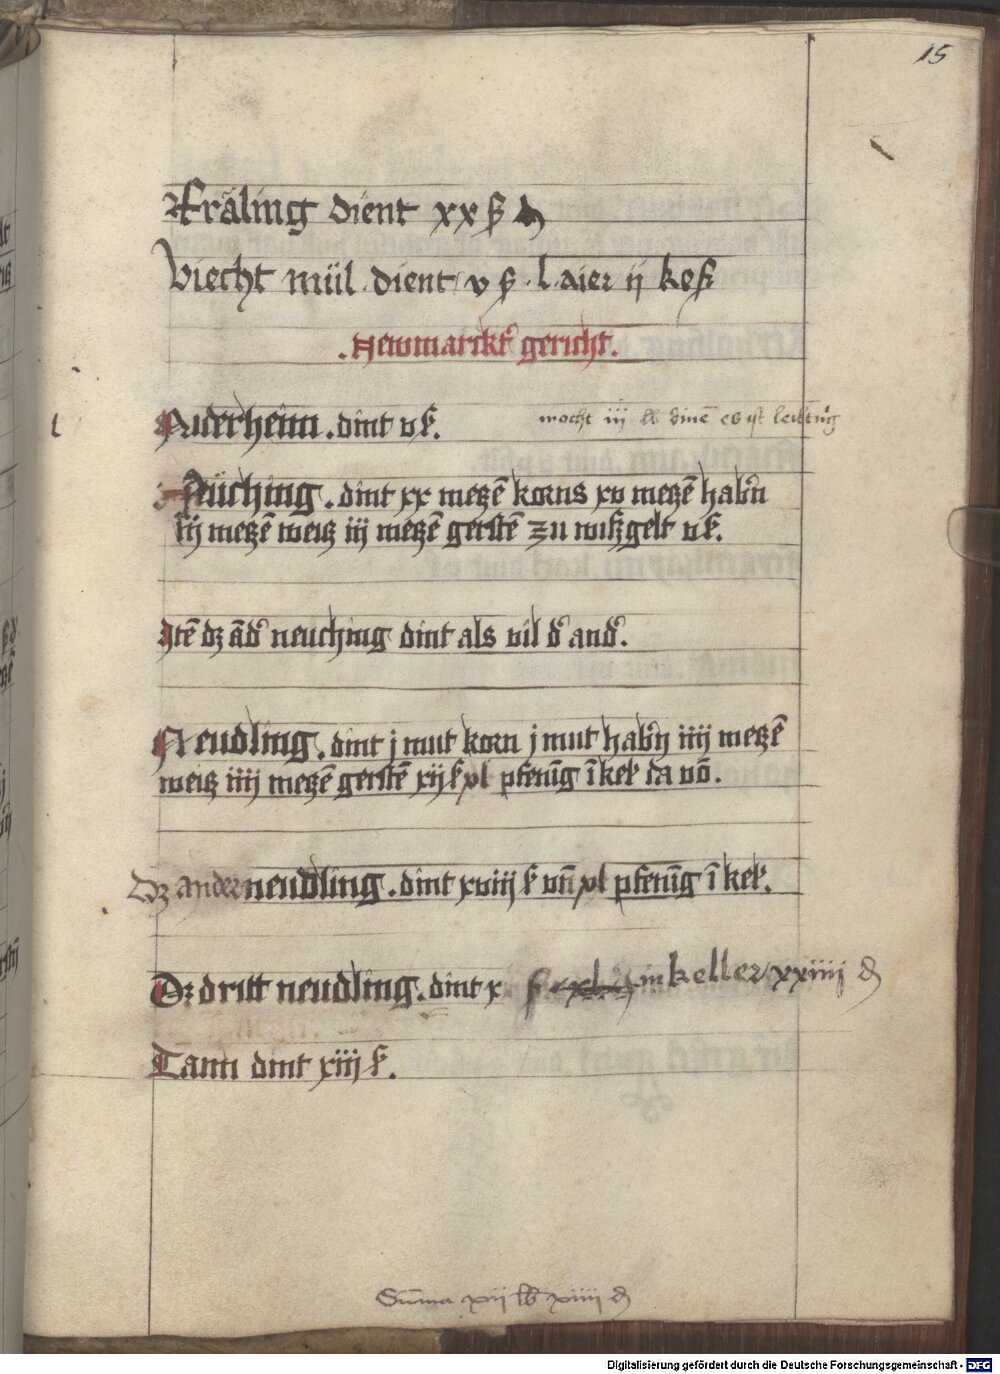 15
Fräling dient xx ß ₰
Viecht mül dient v ß l aier ij keß
. Newmarckt͛ gericht .
Niderheim . dint v ß.
mocht iij lb dinē es ist
Nüching . dint xx metzē korns xv metzē habn̄
iij metzē weitz iij metzē gerstē zu wißgelt v ß.
Itē dz ād͛ neuching dint als vil d͛ and͛.
Neudling . dint j mut korn j mut habn̄ iiij metzē
weitz iiij metzē gerstē xij ß xl pfenīg ī kelr̄ da vō .
Dz ander neudling . dint xviij ß vn̄ xl pfenīg ī kelr̄.
Dz dritt neudling . dint x ß in keller xxiiij ₰
Tann dint xiij ß .
Sum̄a xvij lb xiiij ₰
Digitalisierung gefördert durch die Deutsche Forschungsgemeinschaft - DFG